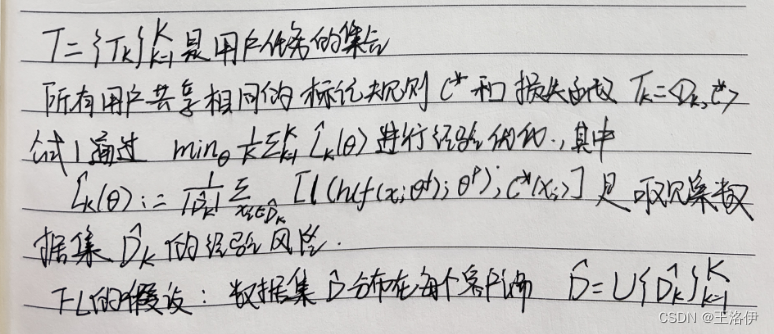 T={T_k}_{k=1}^K 是用户任务的集合
所有用户共享相同的标记规则 c* 和损失函数 T_k=<D_k, c*>
公式1通过 min_θ 1/K Σ_{k=1}^K L̂_k(θ) 进行经验优化,其中
L̂_k(θ):= 1/|D̂_k| Σ_{x_i∈D̂_k} [l(h(f(x_i;θ^f);θ^p), c*(x_i)] 是可观察数
据集 D̂_k 的经验风险.
FL的假设: 数据集 D̂ 分布在每个客户端 D̂=∪{D̂_k}_{k=1}^K
CSDN @王洛伊